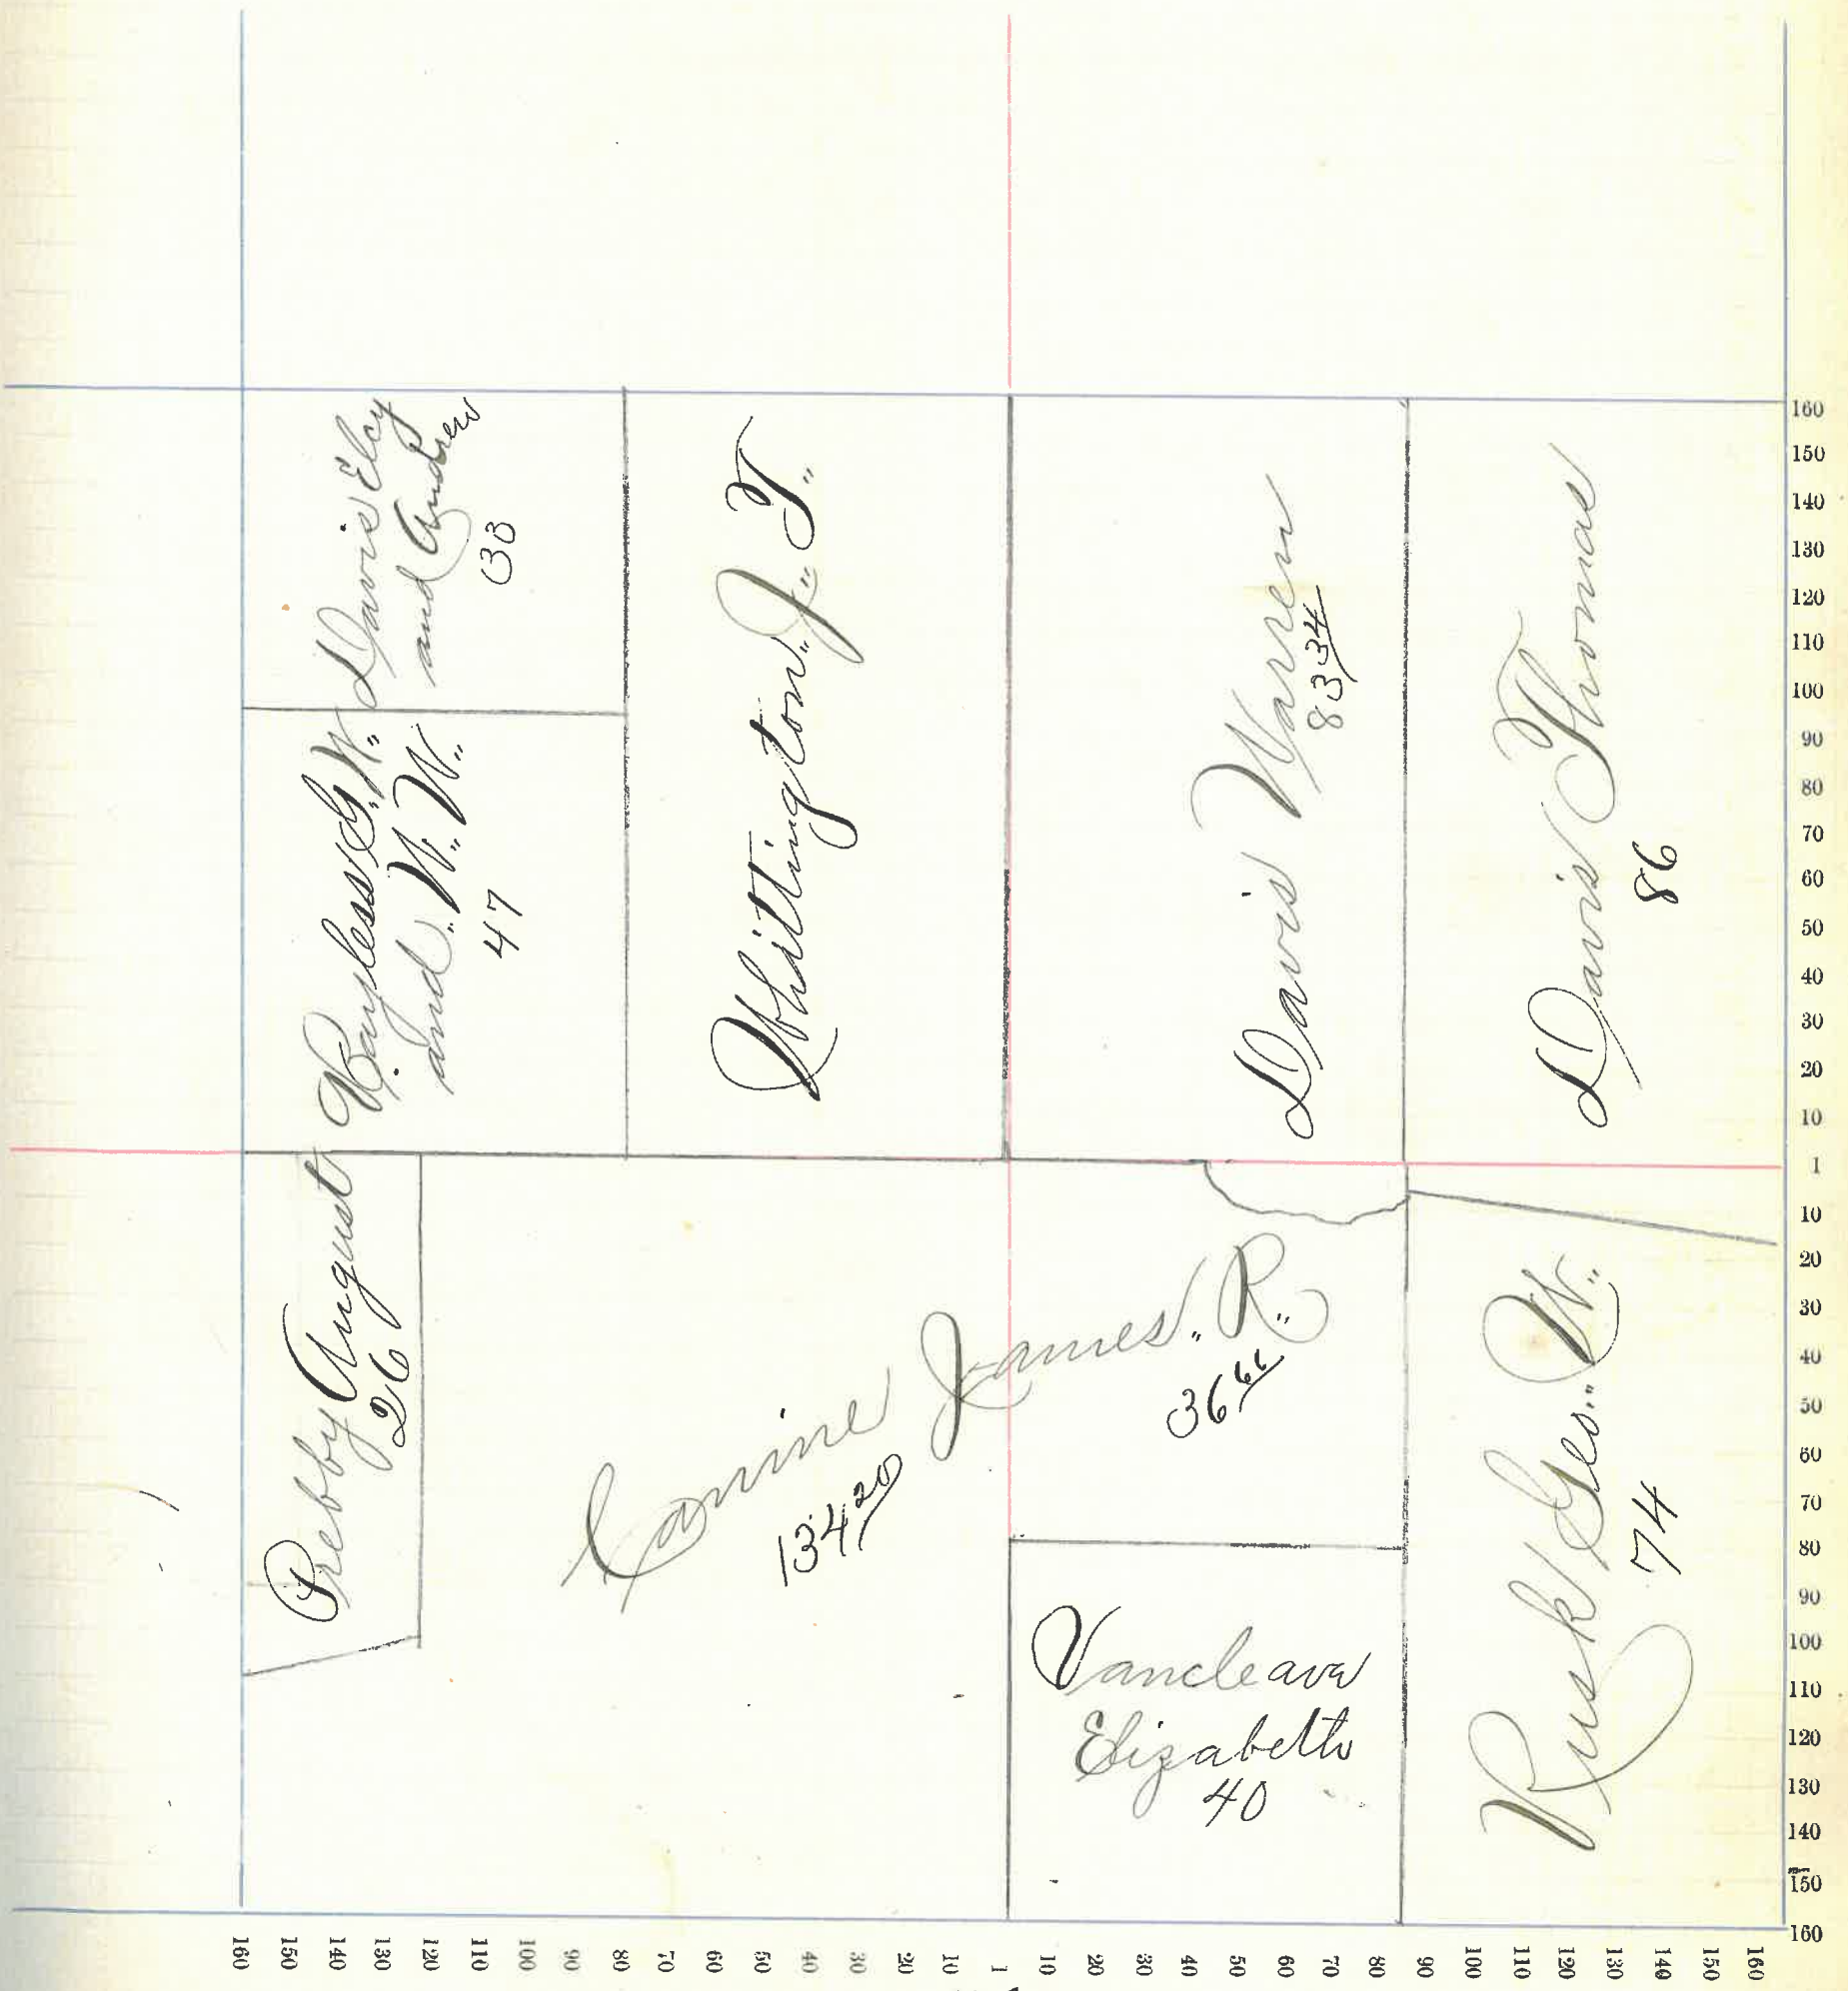 Davis Elcy
and Andrew
33
Bayless G. W.
and W. W.
47
Whittington J. T.
Davis Warren
83 34
Davis Thomas
86
Prebby August
26
Canine James R.
134 20
36 66
Vancleave
Elizabeth
40
Rusk Geo. W.
74
160
150
140
130
120
110
100
90
80
70
60
50
40
30
20
10
1
10
20
30
40
50
60
70
80
90
100
110
120
130
140
150
160
160 150 140 130 120 110 100 90 80 70 60 50 40 30 20 10 1 10 20 30 40 50 60 70 80 90 100 110 120 130 140 150 160